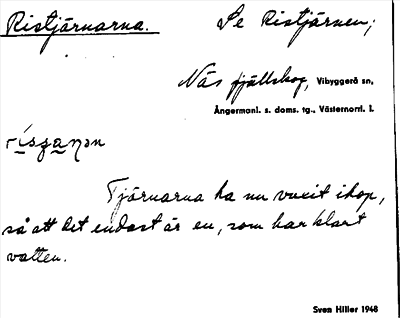 Ristjärnarna.
Se Ristjärnen;
Näs fjällskog, Vibyggerå sn,
Ångermanl. s. doms. tg., Västernorrl. l.
Tjärnarna ha nu vuxit ihop,
så att det endast är en, som har klart
vatten.
Sven Hiller 1948